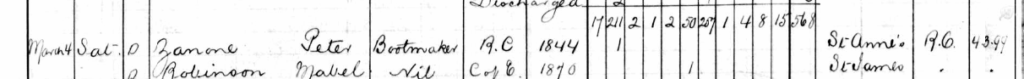 Discharged
17 211 2 1 2 50 207 1 4 8 15 568
March 4 Sat D Zanone Peter Bootmaker R.C 1844 1 St Anne's R.C. 4.3.99
D Robinson Mabel Nil C of E. 1870 1 St James . .